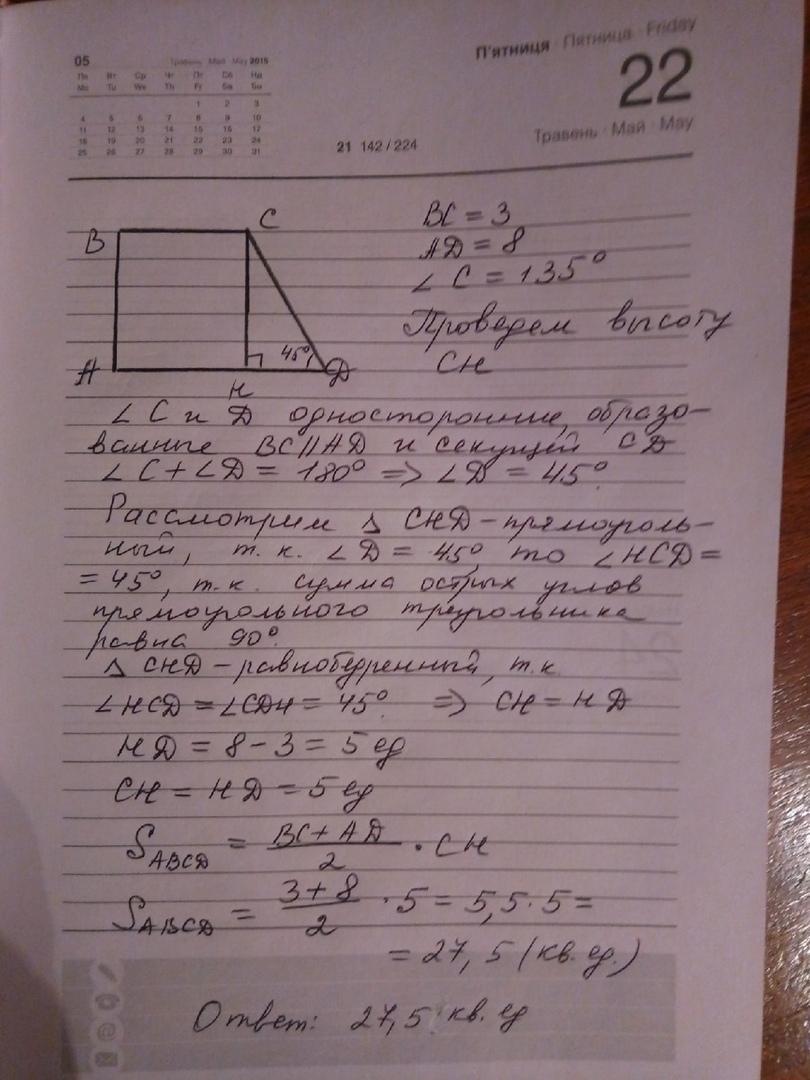 05 Травень Май May 2015
Пн Вт Ср Чт Пт Сб Нд
Mo Tu We Th Fr Sa Su
1 2 3
4 5 6 7 8 9 10
11 12 13 14 15 16 17
18 19 20 21 22 23 24
25 26 27 28 29 30 31
21 142 / 224
П'ятниця · Пятница · Friday
22
Травень · Май · May
B C
A H D
45°
BC = 3
AD = 8
∠ C = 135°
Проведем высоту
CH
∠ C и D односторонние, образо-
ванные BC//AD и секущей CD
∠ C + ∠ D = 180° => ∠ D = 45°.
Рассмотрим △ CHD - прямоуголь-
ный, т. к. ∠ D = 45°, то ∠ HCD =
= 45°, т.к. сумма острых углов
прямоугольного треугольника
равна 90°.
△ CHD - равнобедренный, т.к.
∠ HCD = ∠ CDH = 45°. => CH = HD
HD = 8 - 3 = 5 ед
CH = HD = 5 ед
S ABCD = BC + AD / 2 · CH
S ABCD = 3 + 8 / 2 · 5 = 5,5 · 5 =
= 27,5 (кв. ед.)
Ответ: 27,5 кв. ед